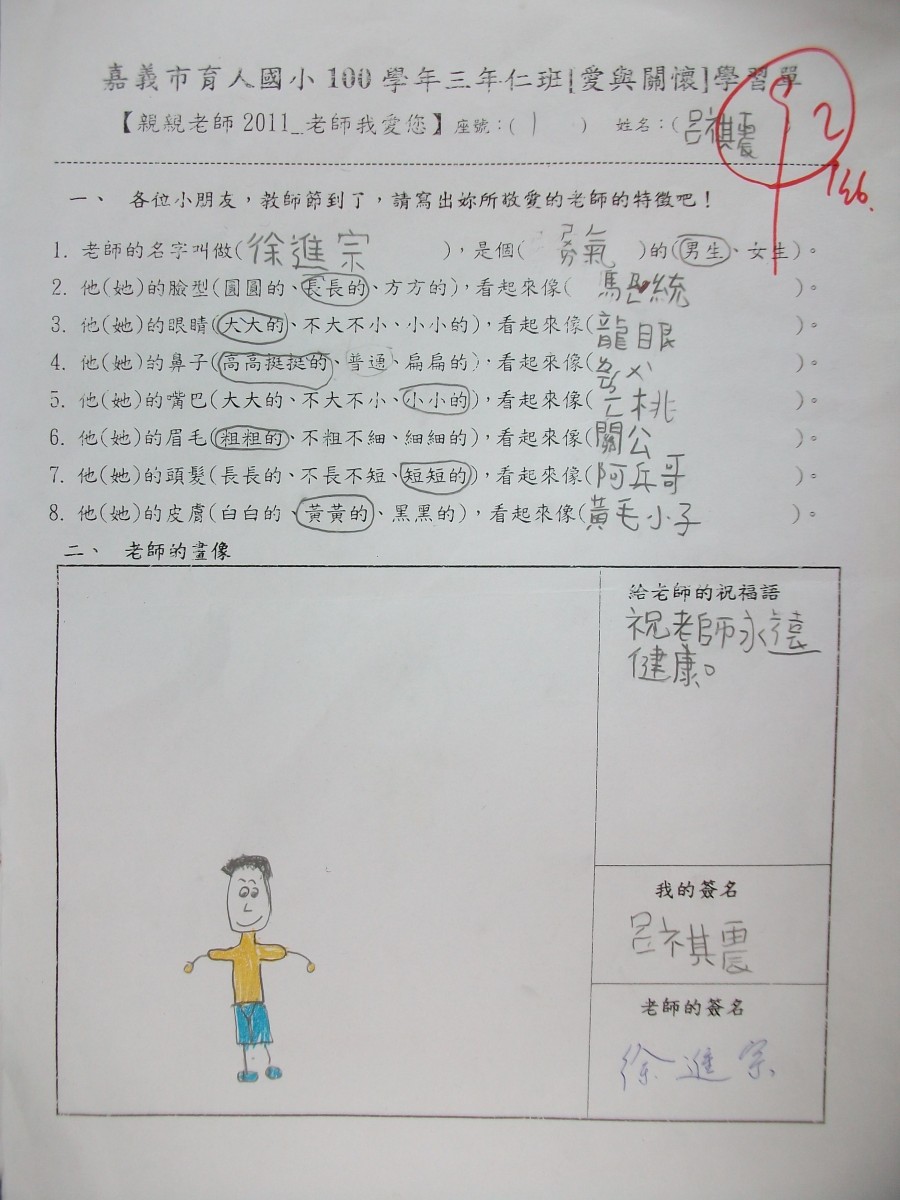 嘉義市育人國小100學年三年仁班[愛與關懷]學習單
【親親老師2011_老師我愛您】座號:(1) 姓名:(呂祺震)
2
一、 各位小朋友，教師節到了，請寫出妳所敬愛的老師的特徵吧！
1. 老師的名字叫做(徐進宗)，是個(勇氣)的(男生、女生)。
2. 他(她)的臉型(圓圓的、長長的、方方的)，看起來像(馬 統)。
3. 他(她)的眼睛(大大的、不大不小、小小的)，看起來像(龍眼)。
4. 他(她)的鼻子(高高挺挺的、普通、扁扁的)，看起來像()。
5. 他(她)的嘴巴(大大的、不大不小、小小的)，看起來像(桃)。
6. 他(她)的眉毛(粗粗的、不粗不細、細細的)，看起來像(關公)。
7. 他(她)的頭髮(長長的、不長不短、短短的)，看起來像(阿兵哥)。
8. 他(她)的皮膚(白白的、黃黃的、黑黑的)，看起來像(黃毛小子)。
二、 老師的畫像
給老師的祝福語
祝老師永遠
健康。
我的簽名
呂祺震
老師的簽名
徐進宗